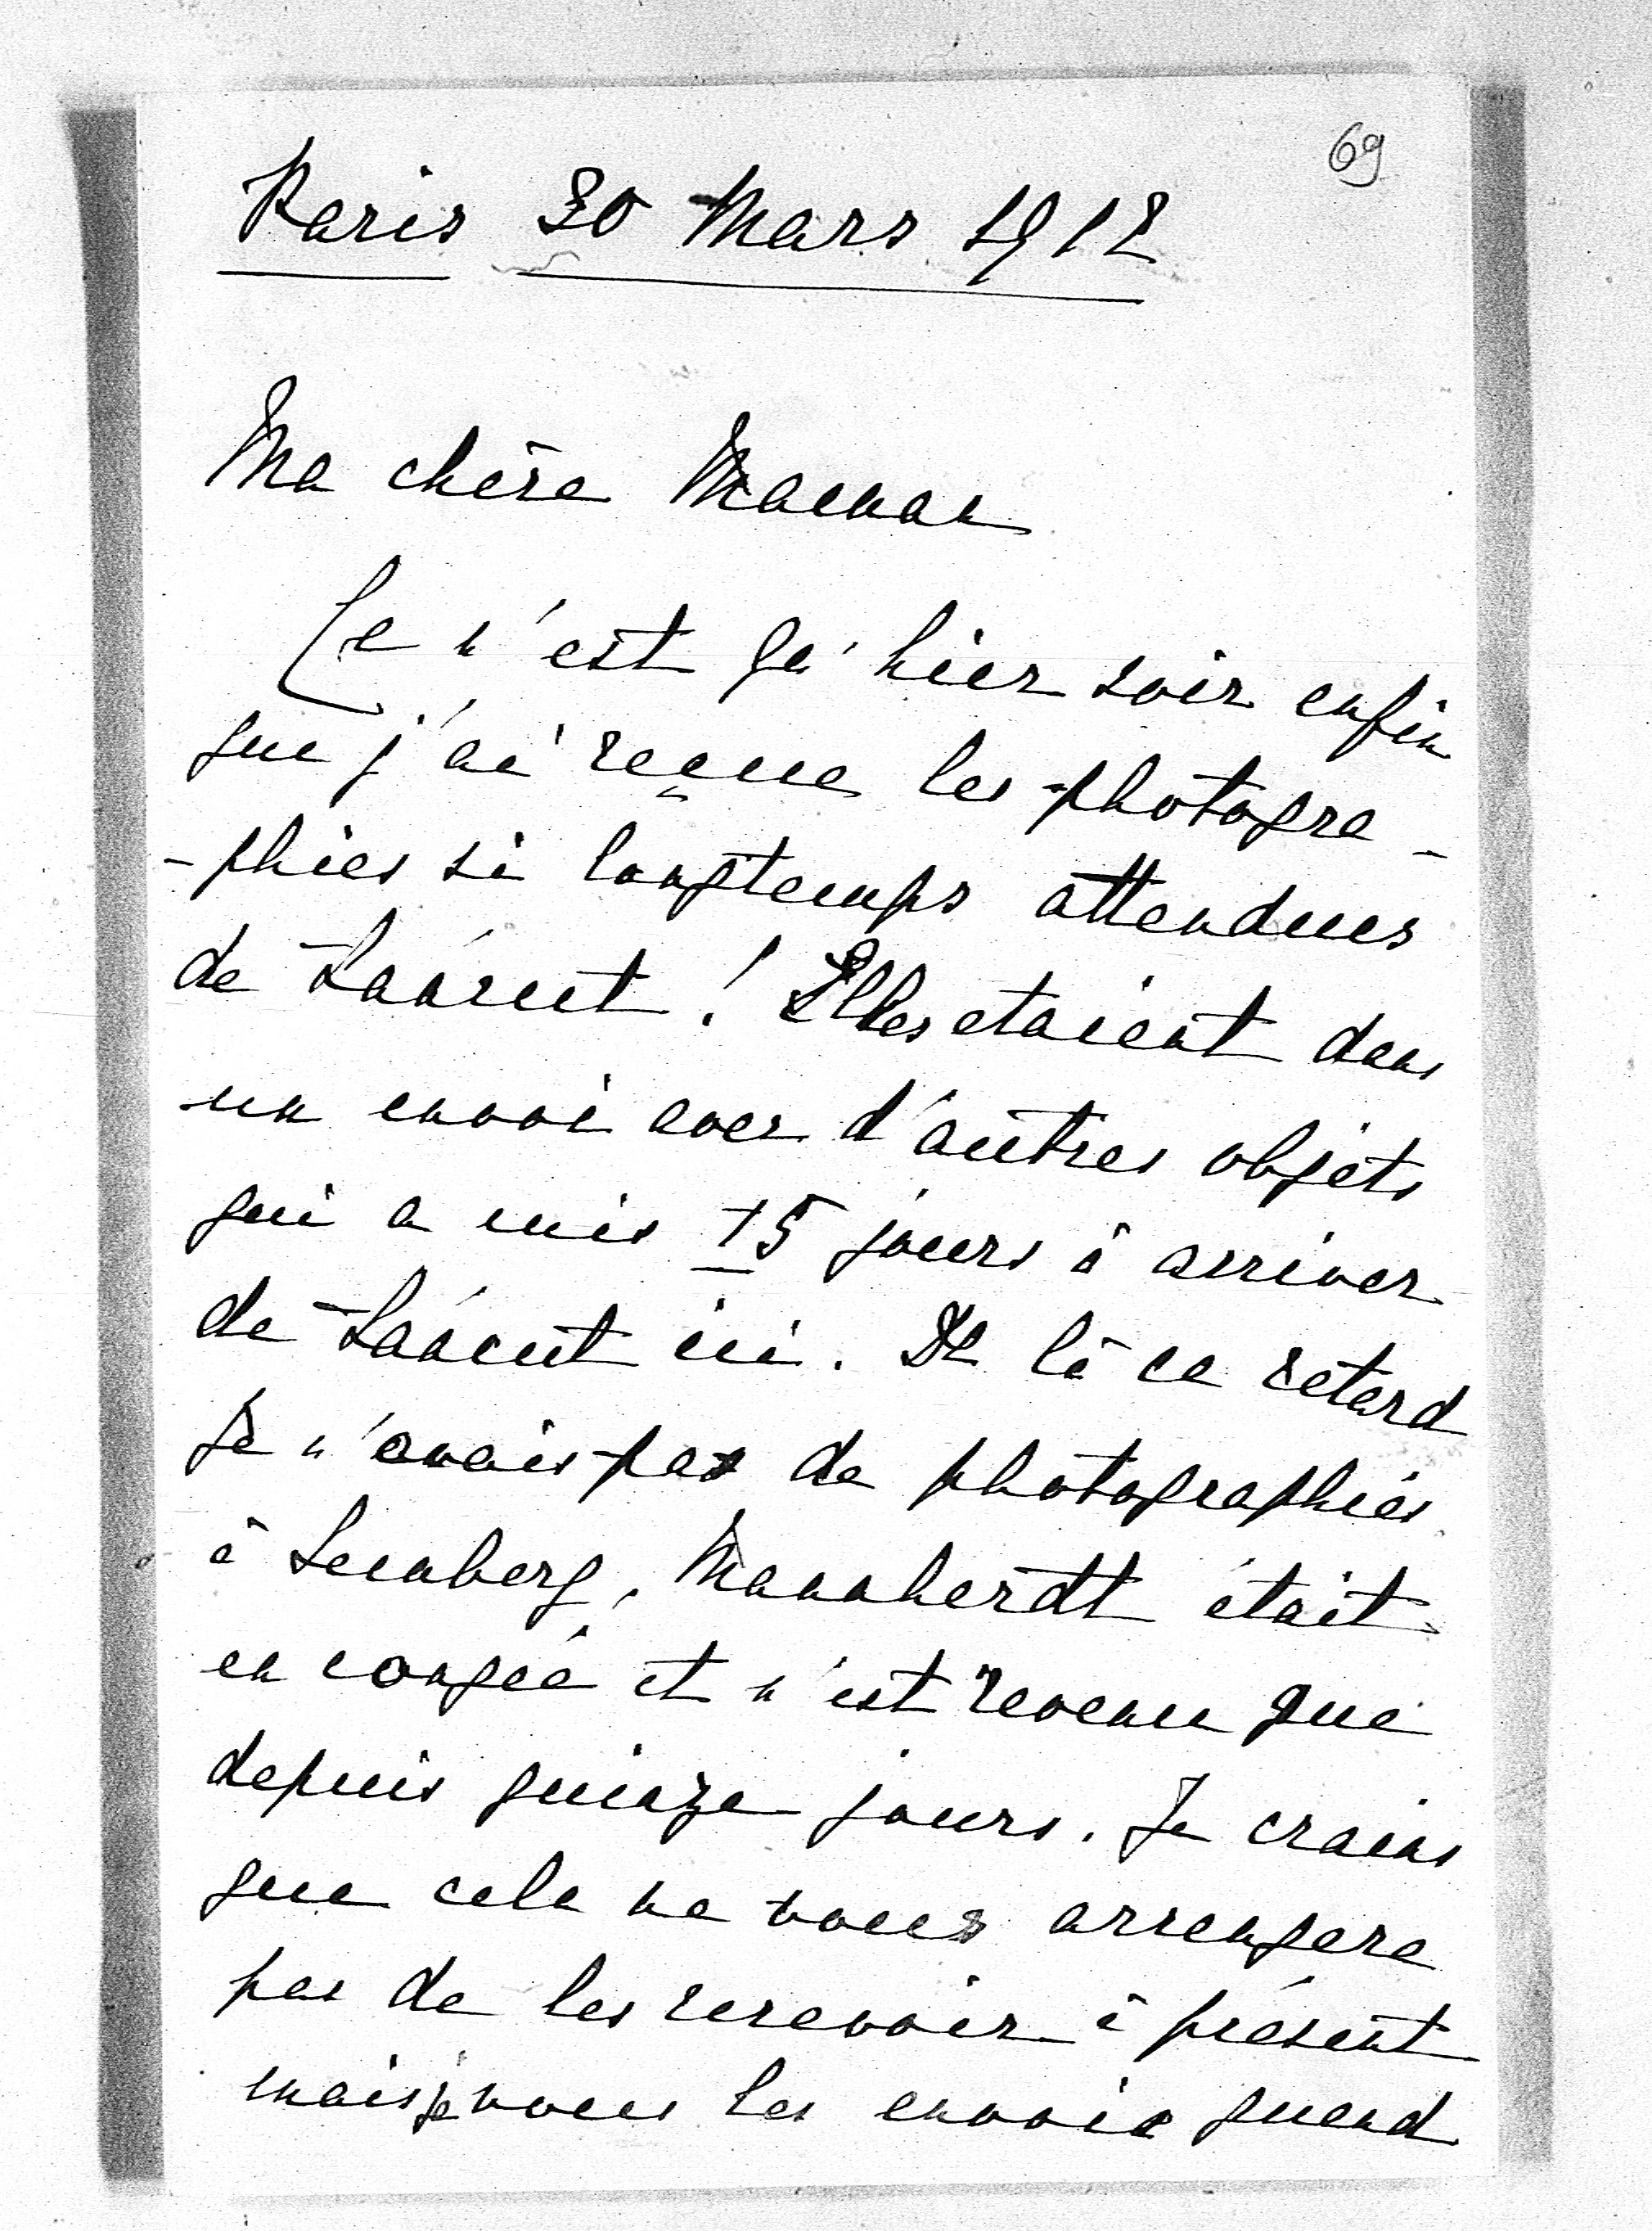 69
Paris 30 Mars 1912
Ma chère Maman
Ce n'est qu'hier soir enfin
que j'ai reçue les photogra-
-phies si longtemps attendues
de Łańcut! Elles etaient dans
un envoi avec d'autres objets
qui a mis 15 jours à arriver
de Łańcut ici. De là ce retard
Je n'avais pas de photographies
à Lemberg, Mannherdt était
en congeé et n'est revenu que
depuis quinze jours. Je crains
que cela ne vous arrangera
pas de les recevoir à présent
mais je vous les envoie quand